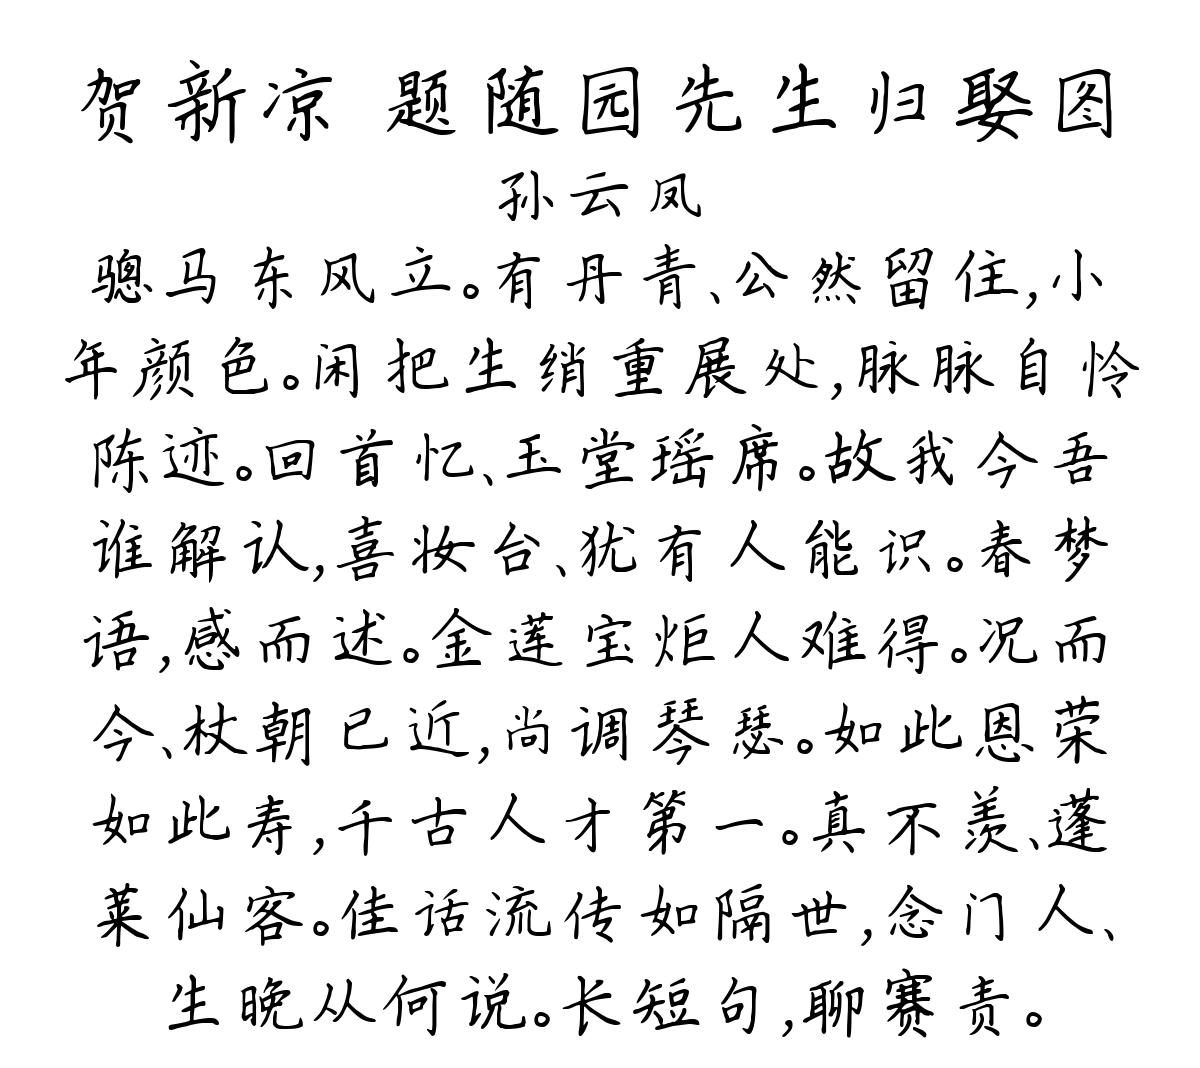 贺新凉 题随园先生归娶图
孙云凤
骢马东风立。有丹青、公然留住,小
年颜色。闲把生绡重展处,脉脉自怜
陈迹。回首忆、玉堂瑶席。故我今吾
谁解认,喜妆台、犹有人能识。春梦
语,感而述。金莲宝炬人难得。况而
今、杖朝已近,尚调琴瑟。如此恩荣
如此寿,千古人才第一。真不羡、蓬
莱仙客。佳话流传如隔世,念门人、
生晚从何说。长短句,聊赛责。